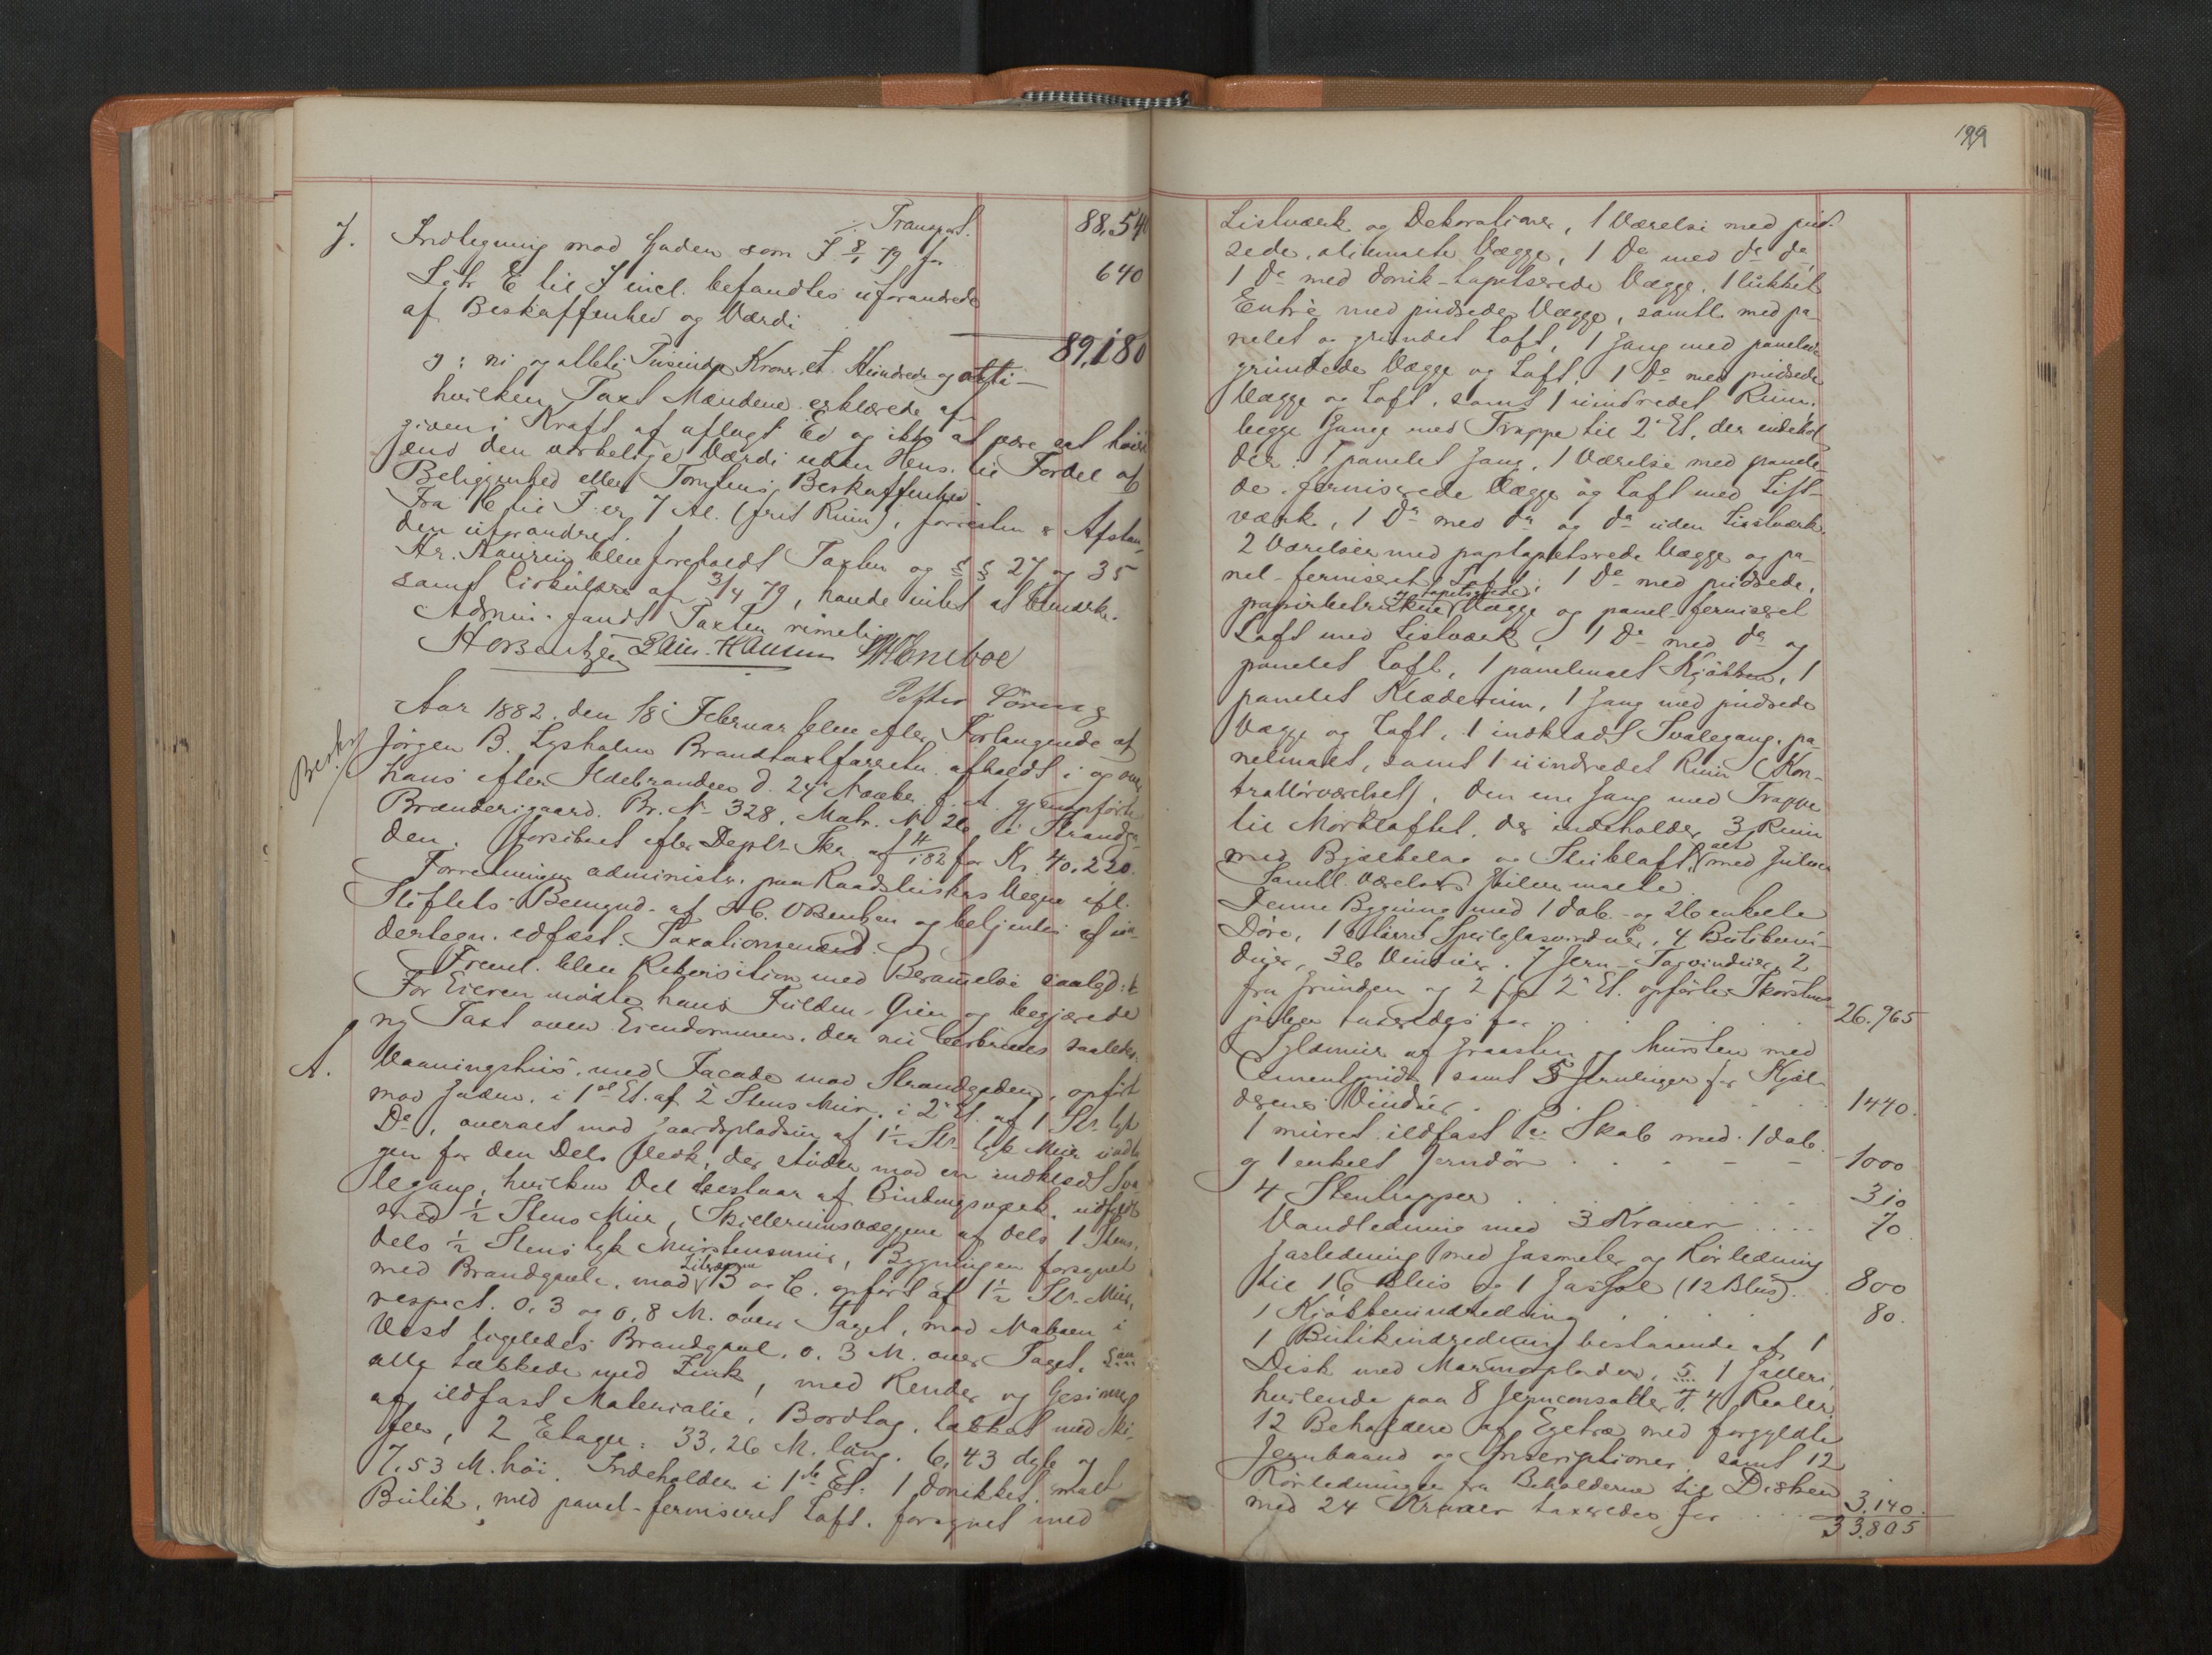 ./. Transport. 88,540
J. Indlegning mod Gaden som J 8/1 79 for 640
Litr. E til J incl. befandtes uforandrede
af Beskaffenhed og Værdi
89,180
ɔ: ni og otteti Tusinde Kroner et Hundrede og otteti —
hvilken Taxt Mændene erklærede af-
given i Kraft af aflagt Ed og ikke at være sat høi-
ere end den virkelige Værdi uden Hens. til Fordel af
Beliggenhed eller Tomtens Beskaffenhed.
Fra H til J er 7 Al. (frit Rum), forresten er Afstan-
den uforandret.
Hr. blev foreholdt Taxten og §§ 27 og 35
samt Cirkulære af 3/4 79, havde intet at bemærke.
Admin. fandt Taxten rimelig
Aar 1882 den 18de Februar blev efter Forlangende af
Jørgen B. Lysholm Brandtaxtforretn. afholdt i og over
hans efter Ildebranden d. 24de Novbr. f. A. gjenopførte
Brænderigaard. Br. No 328. Matr. No 26 i Strandga-
den. forsikret efter Depts Skr. af 4/1 82 for Kr. 40,220.
Forretningen administr. paa Raadstuskr. Vegne efl.
Stiftets Bemynd. af og betjentes af un-
dertegn. edfæst. Taxationsmænd.
Freml. blev Rekvisition med Berammelse saalyd: t
For Eieren mødte hans Fuldm. Grien og begjærede
ny Taxt over Eiendommen. der nu beskrives saaledes:
A. Vaaningshus, med Facade mod Strandgaden, opført
mod Gaden, i 1st Et. af 2 Stens Mur, i 2d Et. af 1 Str. tyk
Do, overalt mod Gaardspladsen af 1½ Str. tyk Mur undta-
gen for den Dels Vedk. der støder mod en indklædt Sva-
legang, hvilken Del bestaar af Bindingsværk, udfyldt
med ½ Stens Mur, Skillerumsvæggene af dels 1 Stens,
dels ½ Stens tyk Murstensmur, Bygningen forsynet
med Brandgavle, mod Litrægene B og C. opført af 1½ Str. Mur,
respect. 0,3 og 0,8 M. over Taget, mod Naboen i
Vest ligeledes Brandgavl, 0,3 M. over Taget, samt
alle tækkede med Zink, med Render og Gesimser
af ildfast Materialie, Bordtag, tækket med Ski-
fer, 2 Etager: 33,26 M. lang, 6,43 dyb og
7,53 M. høi. Indeholder i 1ste Et: 1 donikket, malt
Butik, med panel-ferniseret Loft, forsynet med
199
Listværk og Dekorationer, 1 Værelse med pud-
sede, olitmalte Vægge, 1 Do med do do,
1 Do med donik-tapetserede Vægge, 1 lukket
Entré med pudsede Vægge, samtl. med pa-
nelet og grundet Loft, 1 Gang med panelede
grundede Vægge og Loft, 1 Do med pudsede
Vægge og Loft, samt 1 uindredet Rum,
begge Gange med Trappe til 2d Et. der indehol-
der: 1 panelet Gang, 1 Værelse med panele-
de, ferniserede Vægge og Loft med List-
værk, 1 Do med do og do uden Listværk,
2 Værelser med paptapetserede Vægge og pa-
nel-ferniseret Loft, 1 Do med pudsede,
papirbetrukne og tapetserede Vægge og panel-ferniseret
Loft med Listværk, 1 Do med do og
panelet Loft, 1 panelmalt Kjøkken, 1
panelet Klæderum, 1 Gang med pudsede
Vægge og Loft, 1 indklædt Svalegang, pa-
nelmalt, samt 1 uindredet Rum (Kon-
trollørværelset), den ene Gang med Trappe
til Mørkloftet, der indeholder 3 Rum
med Bjælkelag og Stubloft, alt med Gulve
Samtl. Værelsers malte.
Denne Bygning med 1 dob. og 26 enkelte
Døre, 1 større Speilglasvindue, 4 Butikvin-
duer, 36 Vinduer, 7 Jern-Tagvinduer, 2
fra Grunden og 2 fra 2d Et. opførte Skorstens-
piber taxeredes for . . . 26,965
Sylemur af Graasten og Mursten med
Cementpuds, samt 5 Jernluger for Kjæl-
derens Vinduer . . . 1440.
1 muret ildfast Skab med 1 dob.
og 1 enkelt Jerndør . . . 1000
4 Stentrapper . . . 310
Vandledning med 3 Kraner . . . 70
Gasledning med Gasmeter og Rørledning
til 16 Blus og 1 Gassol (12 Blus) . . 800
1 Kjøkkenindredning . . . 80.
1 Butikindredning bestaaende af 1
Disk med Marmorplader, 1 Galleri,
hvilende paa 8 Jernconsoller, 4 Reoler,
12 Beholdere af Egetræ med forgyldte
Jernbaand og Inscriptioner, samt 12
Rørledninger fra Beholderne til Disken
med 24 Kraner taxeredes for . . . 3,140.
33,805